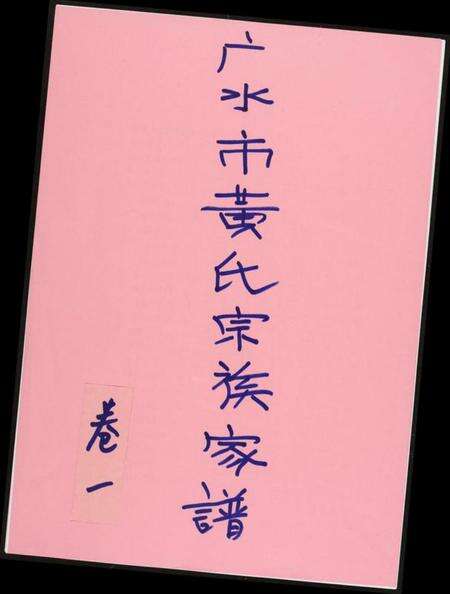 广水市黃氏宗族家譜
卷一